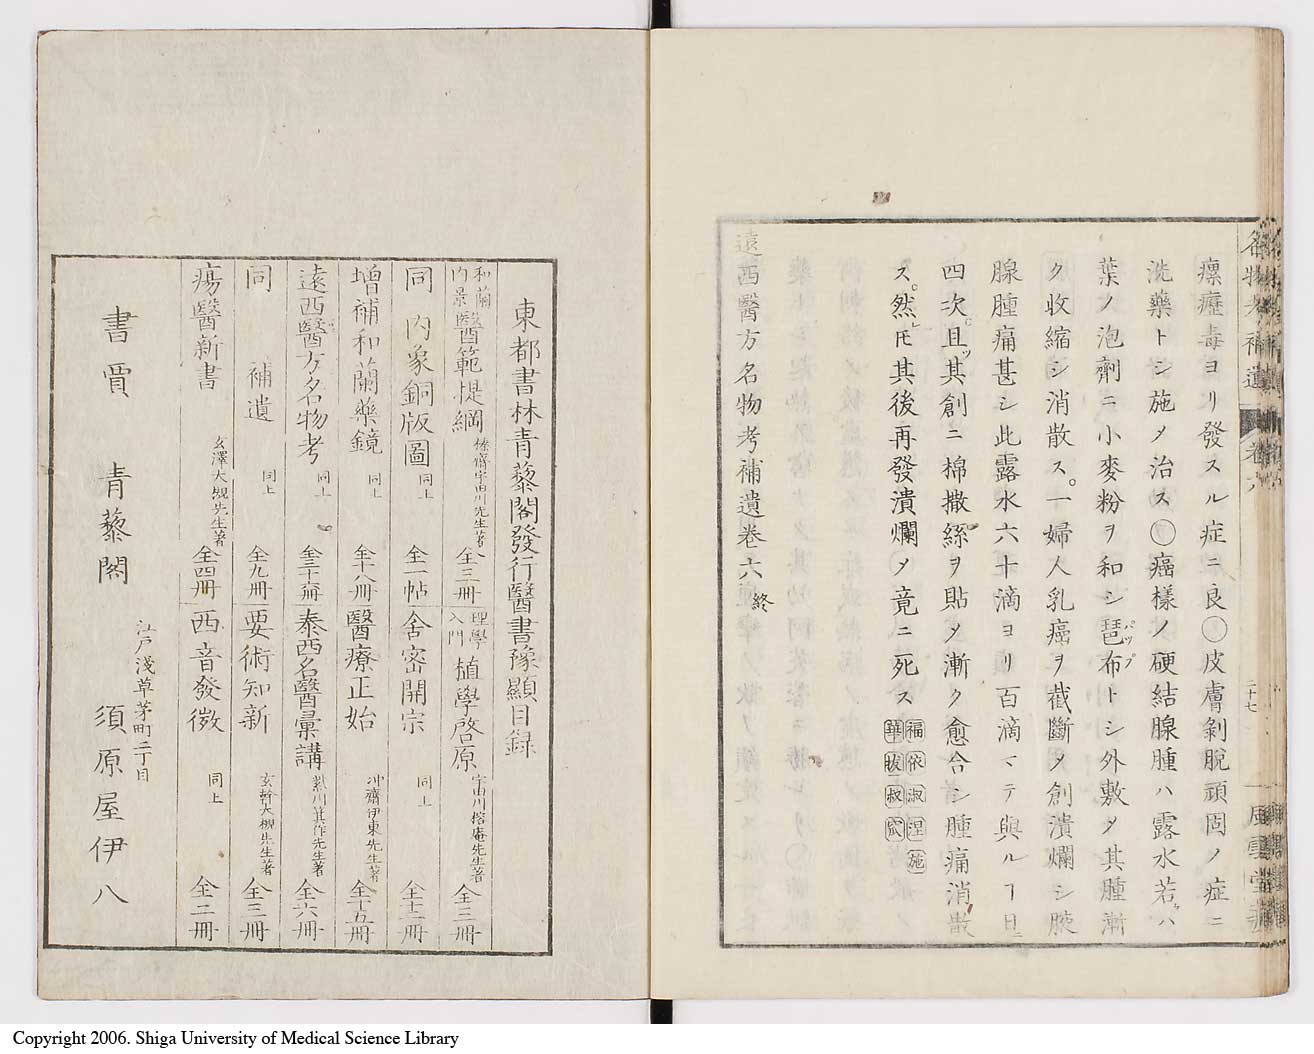 瘰癧毒ヨリ發スル症ニ良〇皮膚剝脫頑固ノ症ニ
洗藥トシ施メ治ス〇癌樣ノ硬結腺腫ハ露水若ハ
葉ノ泡劑ニ小麥粉ヲ和シ琶布トシ外敷メ其腫漸
パップ
ク收縮シ消散ス。一婦人乳癌ヲ截斷メ創潰爛シ腋
腺腫痛甚シ此露水六十滴ヨリ百滴マテ與ルヿ日ニ
四次。且ツ其創ニ棉撒絲ヲ貼メ漸ク愈合シ腫痛消散
ス。然レ𪜈其後再發潰爛メ竟ニ死ス 福依淑涅施
華肢叔歇
遠西醫方名物考補遺卷六終
名物考補遺 卷六 二十七 風雲堂藏
東都書林青藜閣發行醫書豫顯目録
和蘭內景醫範提綱 榛齋宇田川先生著 全三冊
理學入門植學啓原 宇田川榕菴先生著 全三冊
同 內象銅版圖 同上 全一帖
舍密開宗 同上 全十二冊
增補和蘭藥鏡 同上 全十八冊
醫療正始 冲齋伊東先生著 全十五冊
遠西醫方名物考 同上 全三十六冊
泰西名醫彙講 紫川箕作先生著 全六冊
同 補遺 同上 全九冊
要術知新 玄幹大槻先生著 全三冊
瘍醫新書 玄澤大槻先生著 全四冊
西音發微 同上 全二冊
江戸淺草茅町二丁目
書賈 青藜閣 須原屋伊八
Copyright 2006. Shiga University of Medical Science Library